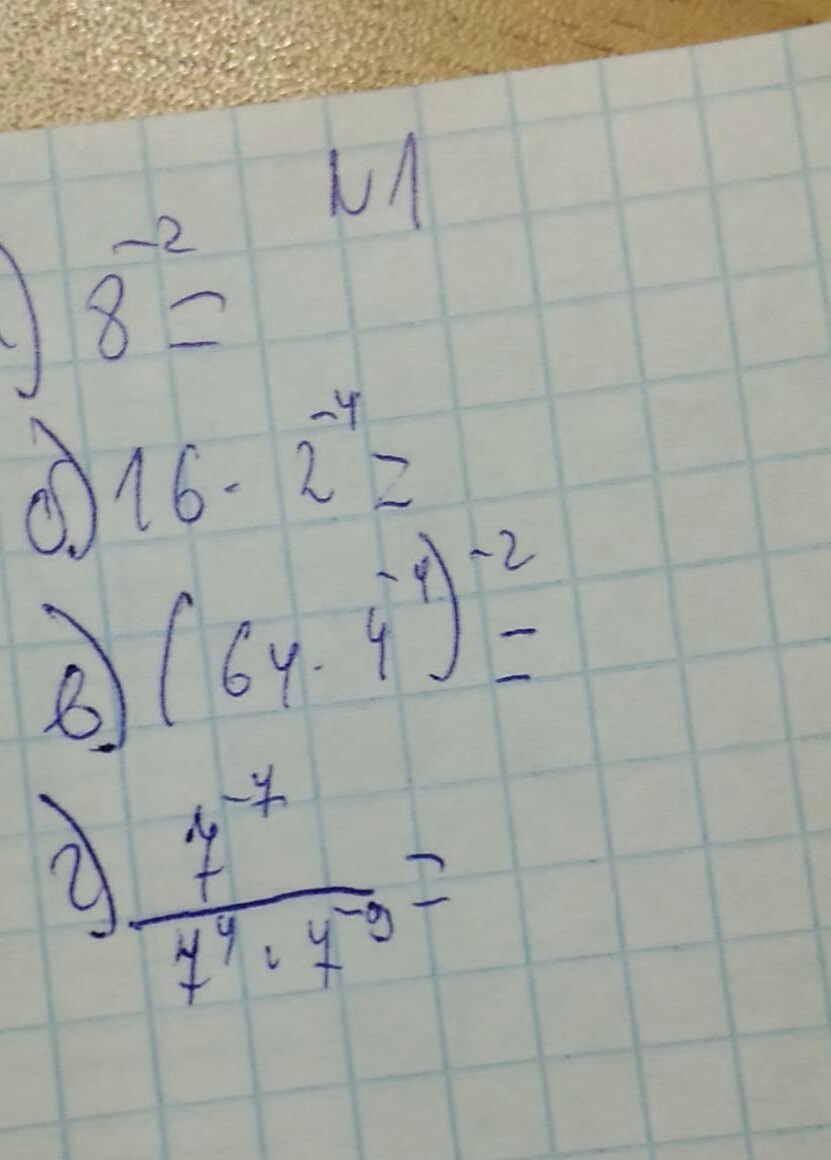 N1
) 8⁻² =
б) 16 · 2⁻⁴ =
в) (64 · 4⁻⁴)⁻² =
г) 7⁻⁷ / 7⁴ · 7⁻⁹ =